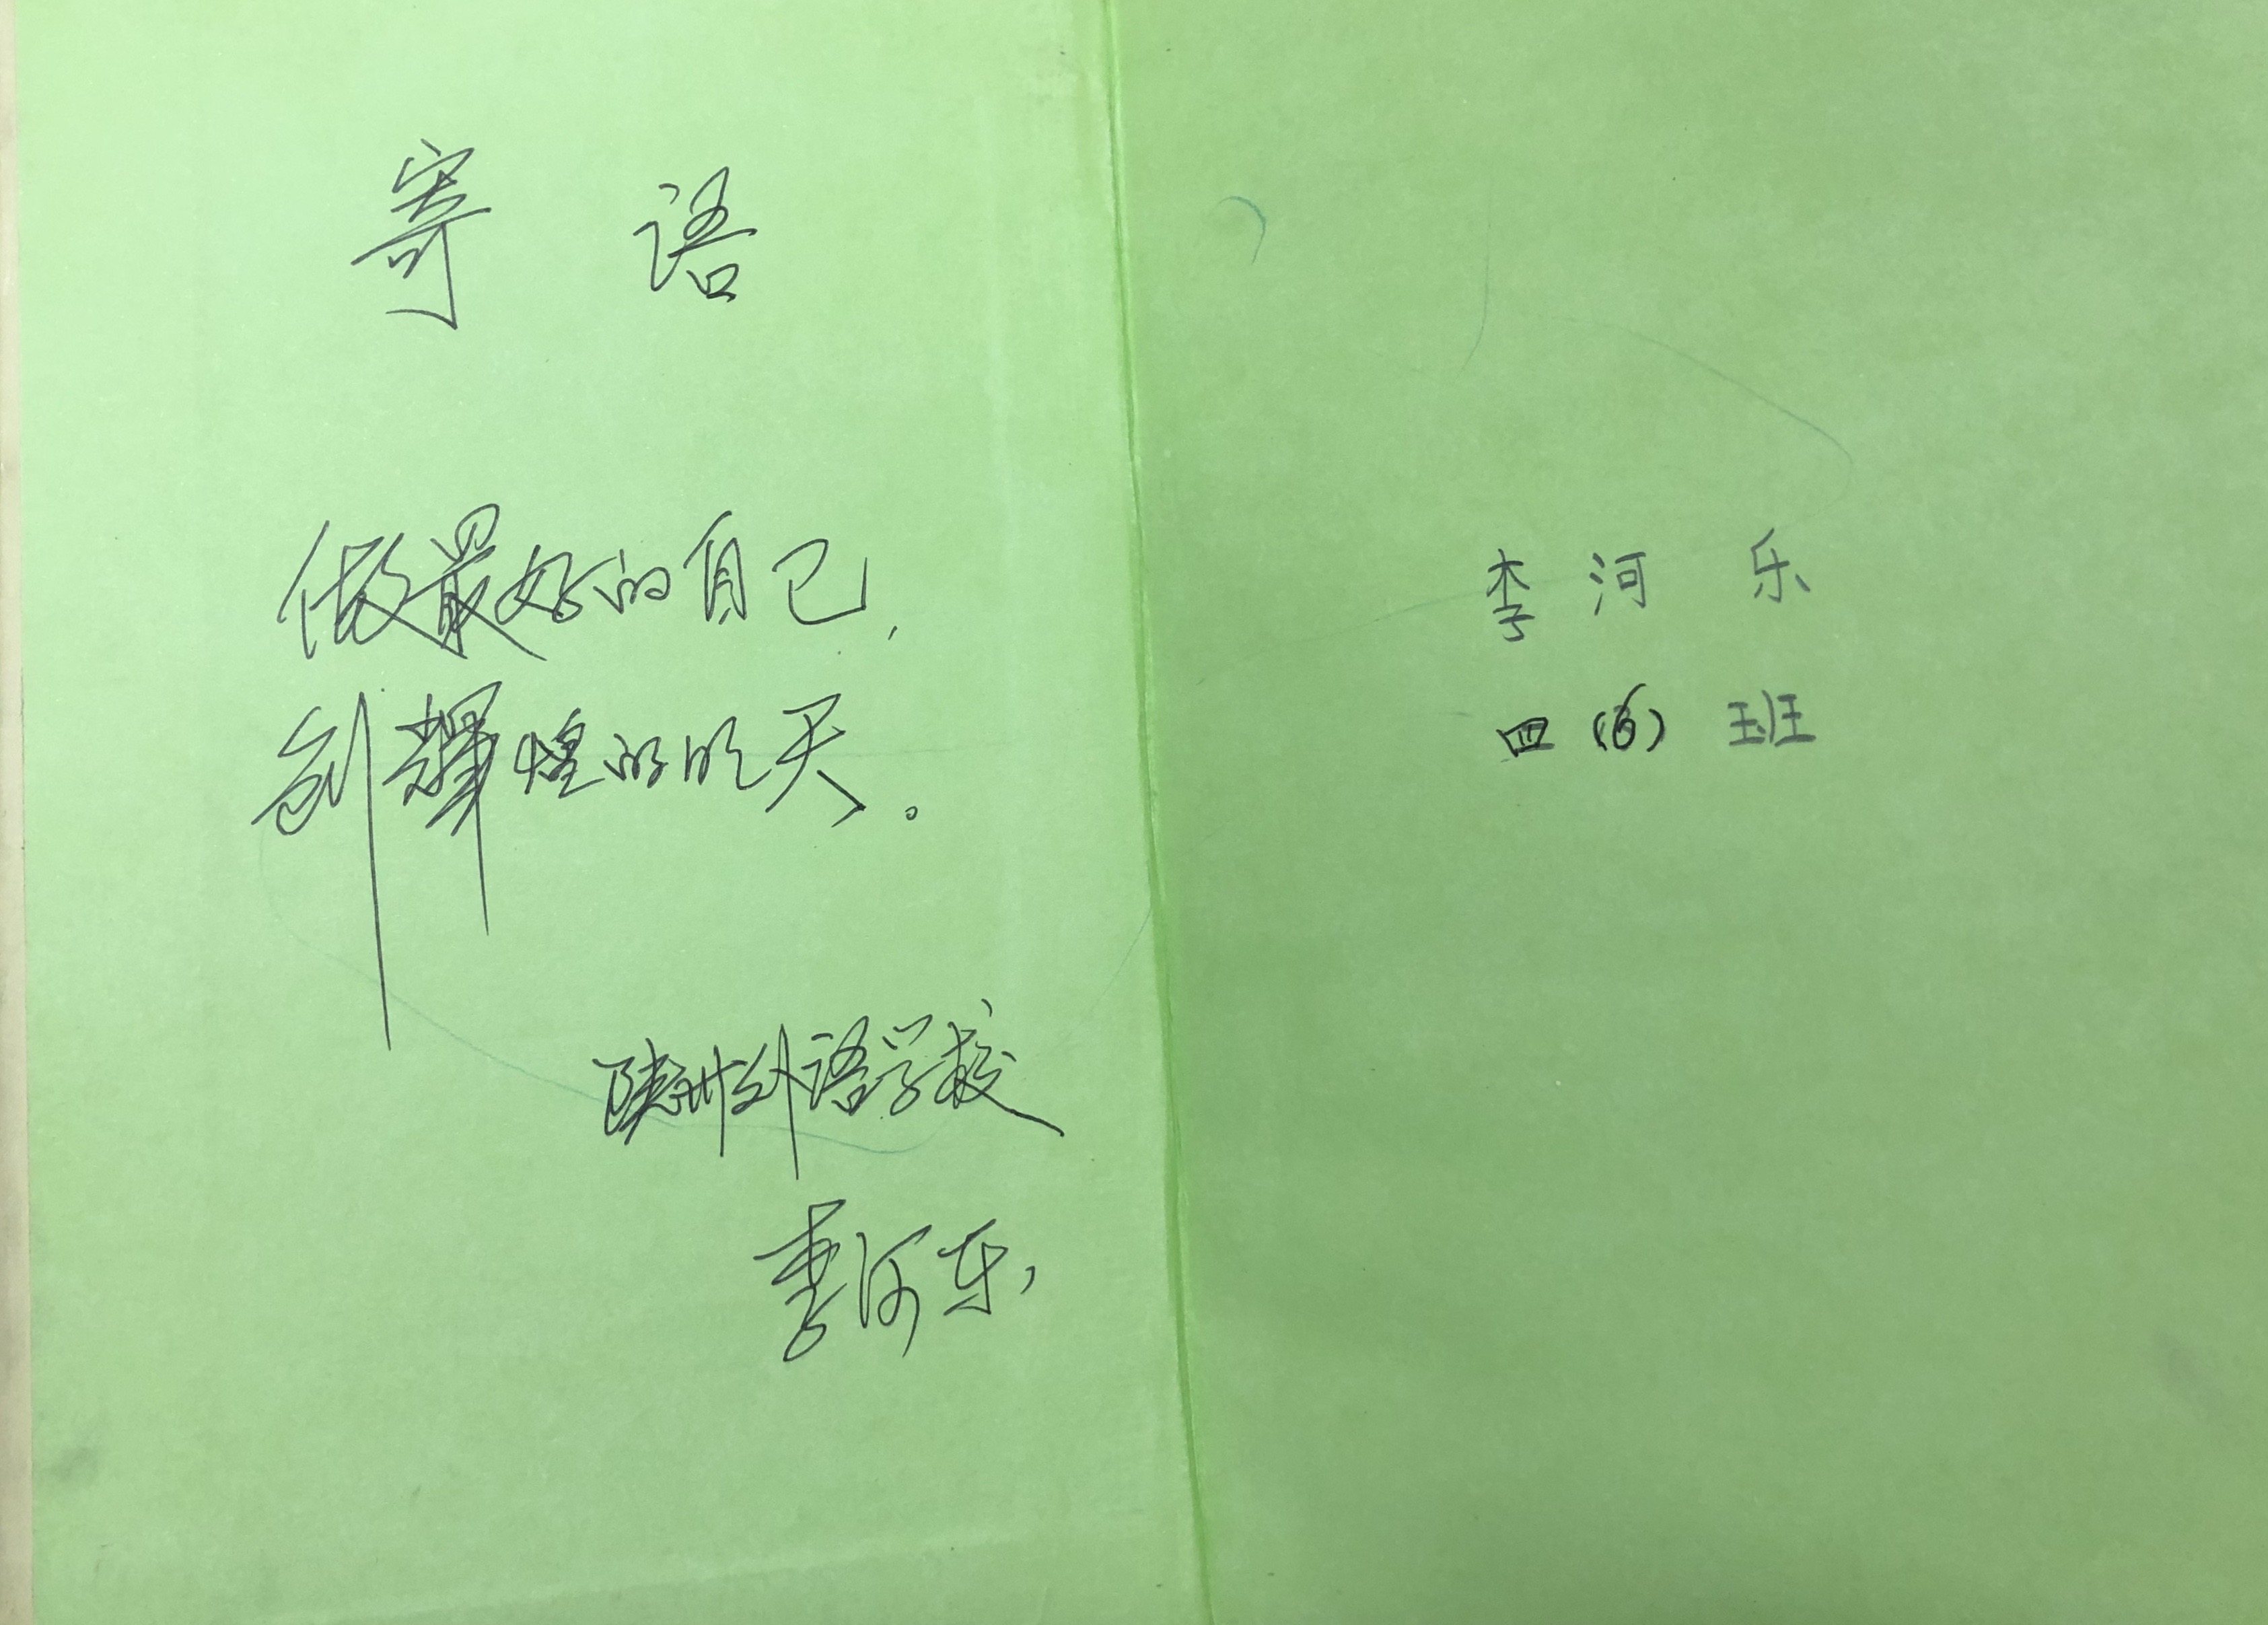 寄 语
做最好的自己,
创辉煌的明天。
陕州外语学校
李河乐
李 河 乐
四 (6) 班